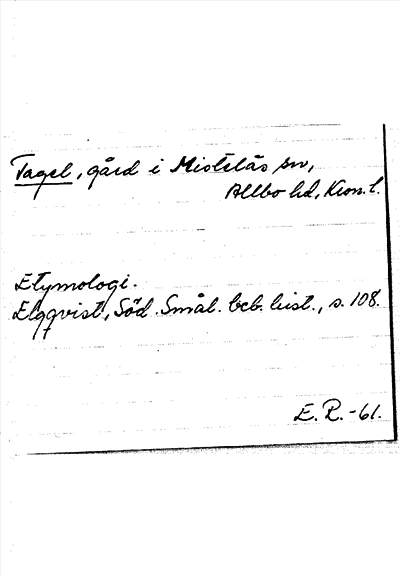 Tagel, gård i Mistelås sn,
Allbo hd, Kron. l.
Etymologi.
Elgqvist, Söd. Smål. beb. hist., s. 108.
E. R. -61.